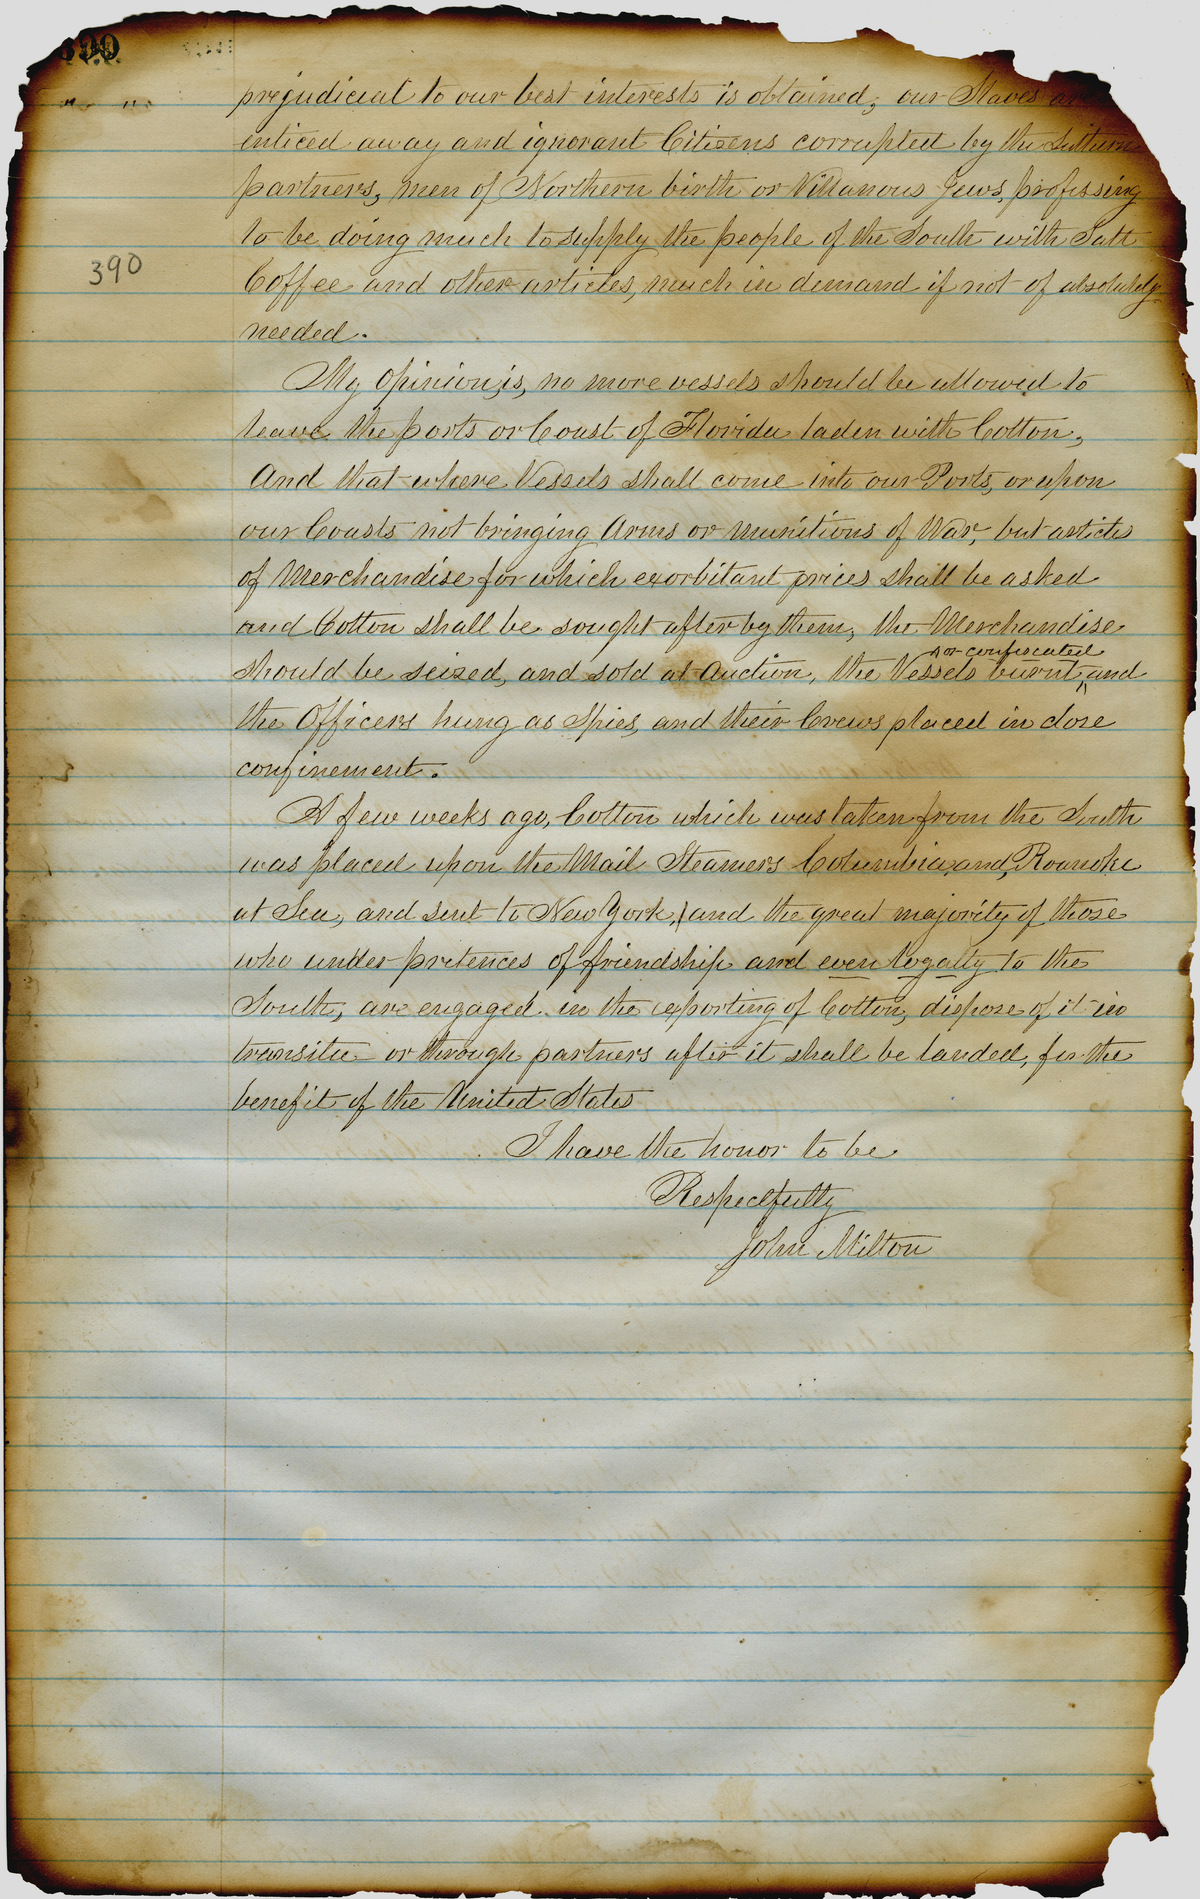 390
prejudicial to our best interests is obtained, our Slaves are
enticed away and ignorant Citizens corrupted by the
partners, men of Northern birth or Villanous Jews, professing
to be doing much to supply the people of the South with Salt
390
Coffee and other articles, much in demand if not of absolutely
needed.
My Opinion, is, no more vessels should be allowed to
leave the ports or Coast of Florida laden with Cotton,
And that where Vessels shall come into our Ports, or upon
our Coasts not bringing Arms or munitions of War, but articles
of Merchandise for which exorbitant prices shall be asked
and Cotton shall be sought after by them, the Merchandise
should be seized, and sold at Auction, the Vessels burnt, or confiscated and
the Officers hung as Spies, and their Crews placed in close
confinement.
A few weeks ago, Cotton which was taken from the South
was placed upon the Mail Steamers Columbia, and, Roanoke
at Sea, and sent to New York, and the great majority of those
who under pretences of friendship and even loyalty to the
South, are engaged in the exporting of Cotton, dispose of it in
transitu or through partners after it shall be landed, for the
benefit of the United States
I have the honor to be
Respectfully
John Milton